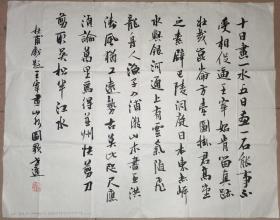 十日畫一水五日畫一石能事不
受相促迫王宰始肯留真跡
壯哉崑崙方壺圖掛君高堂
之素壁巴陵洞庭日本東赤岸
水與銀河通中有雲氣隨飛
龍舟人漁子入浦溆山木盡亞洪
濤風尤工遠勢古莫比咫尺應
須論萬里焉得并州快剪刀
剪取吳松半江水
杜甫戲題王宰畫山水圖歌